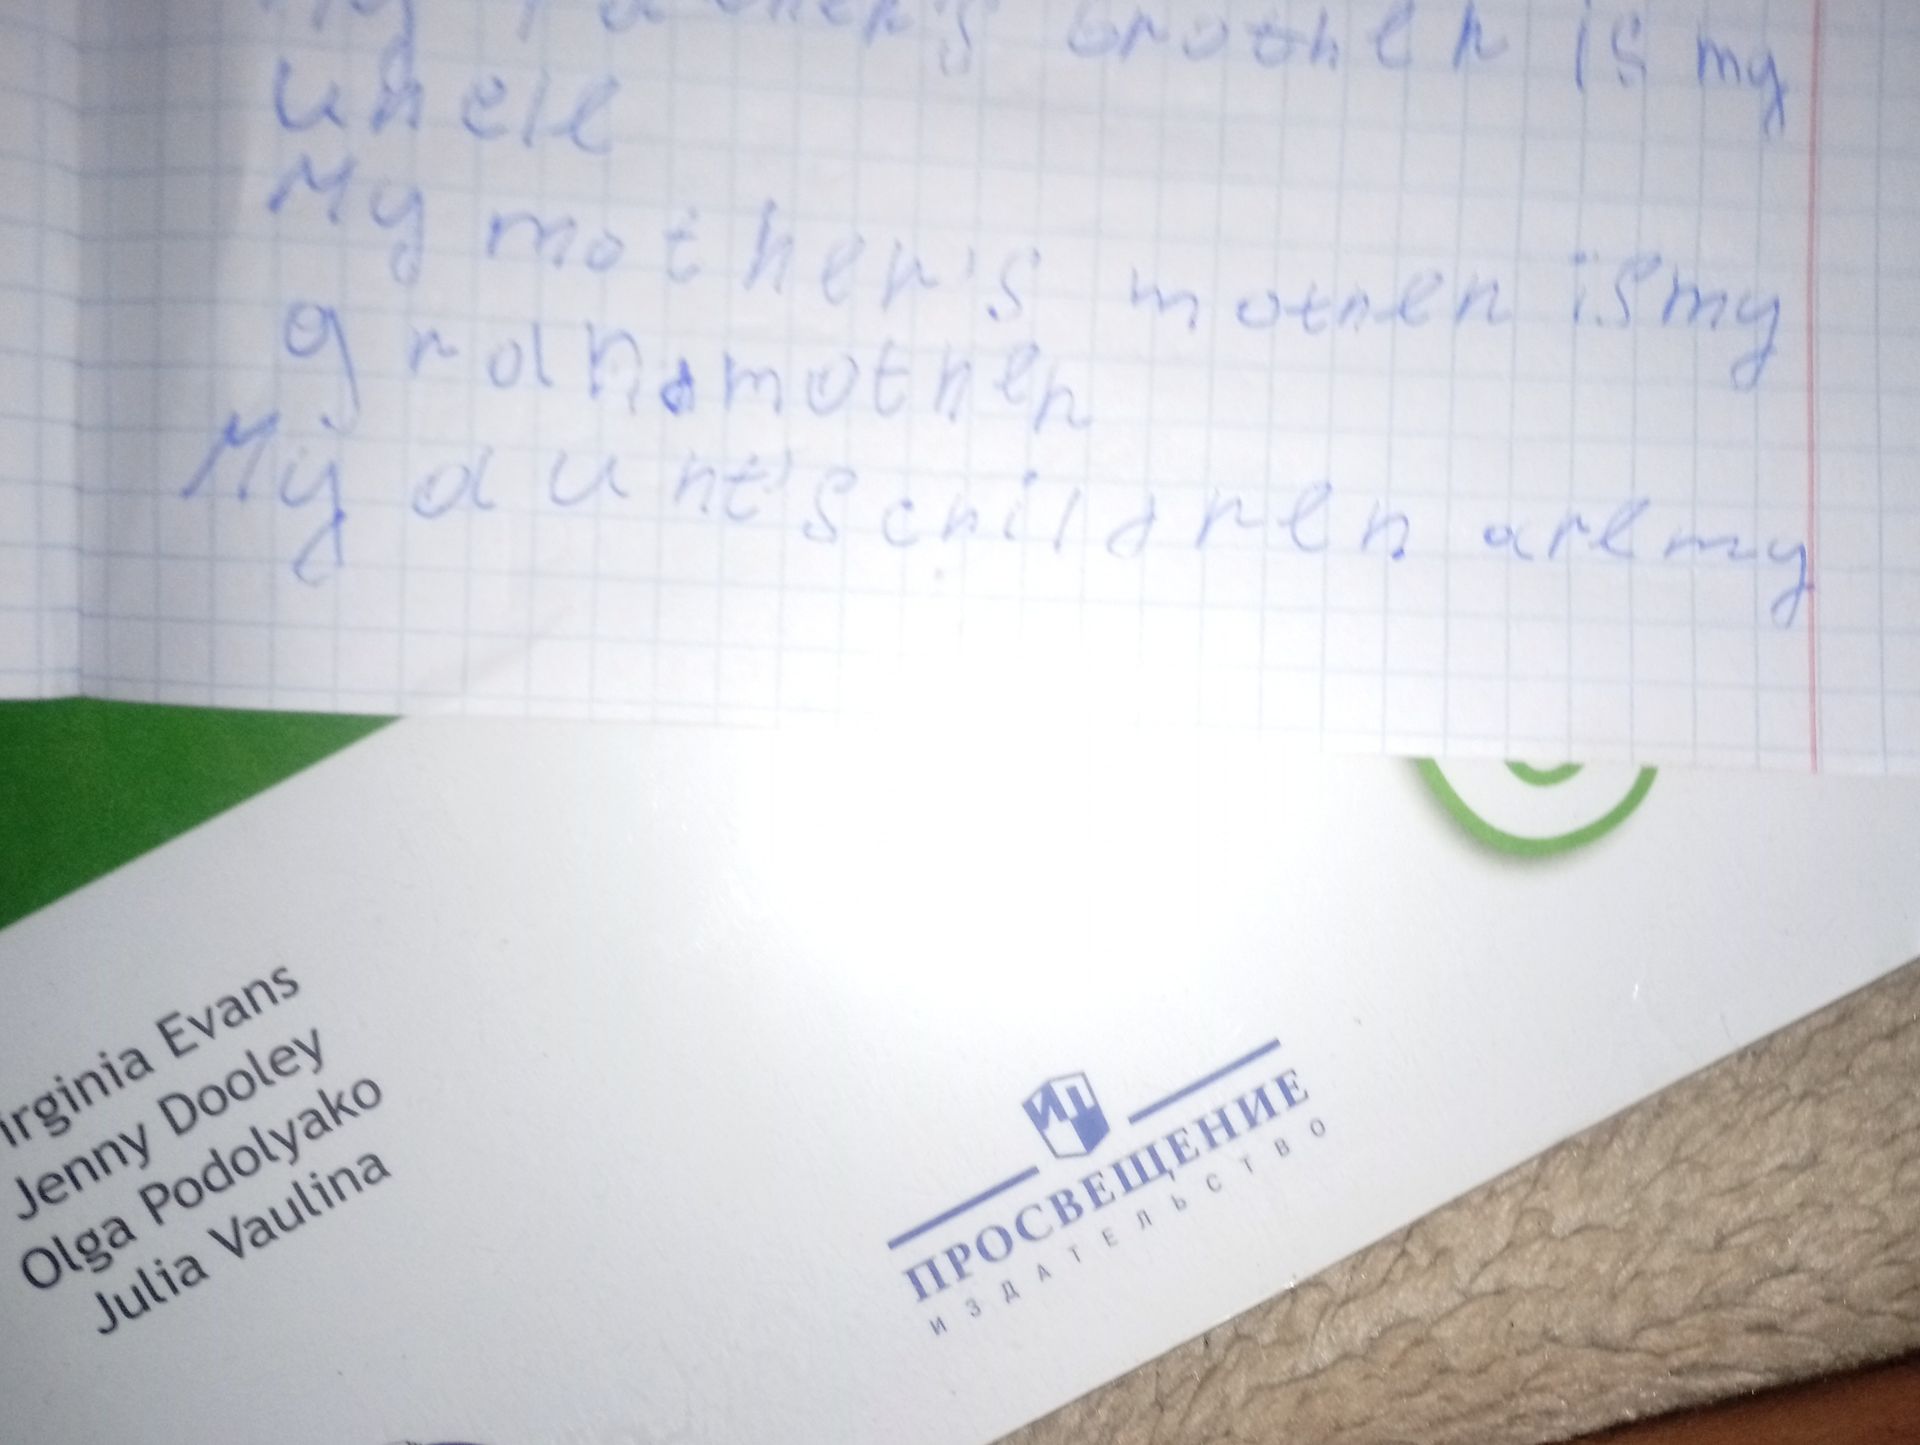 My father's brother is my
uncle
My mother's mother is my
grandmother
My aunt's children are my
irginia Evans
Jenny Dooley
Olga Podolyako
Julia Vaulina
ПРОСВЕЩЕНИЕ
ИЗДАТЕЛЬСТВО